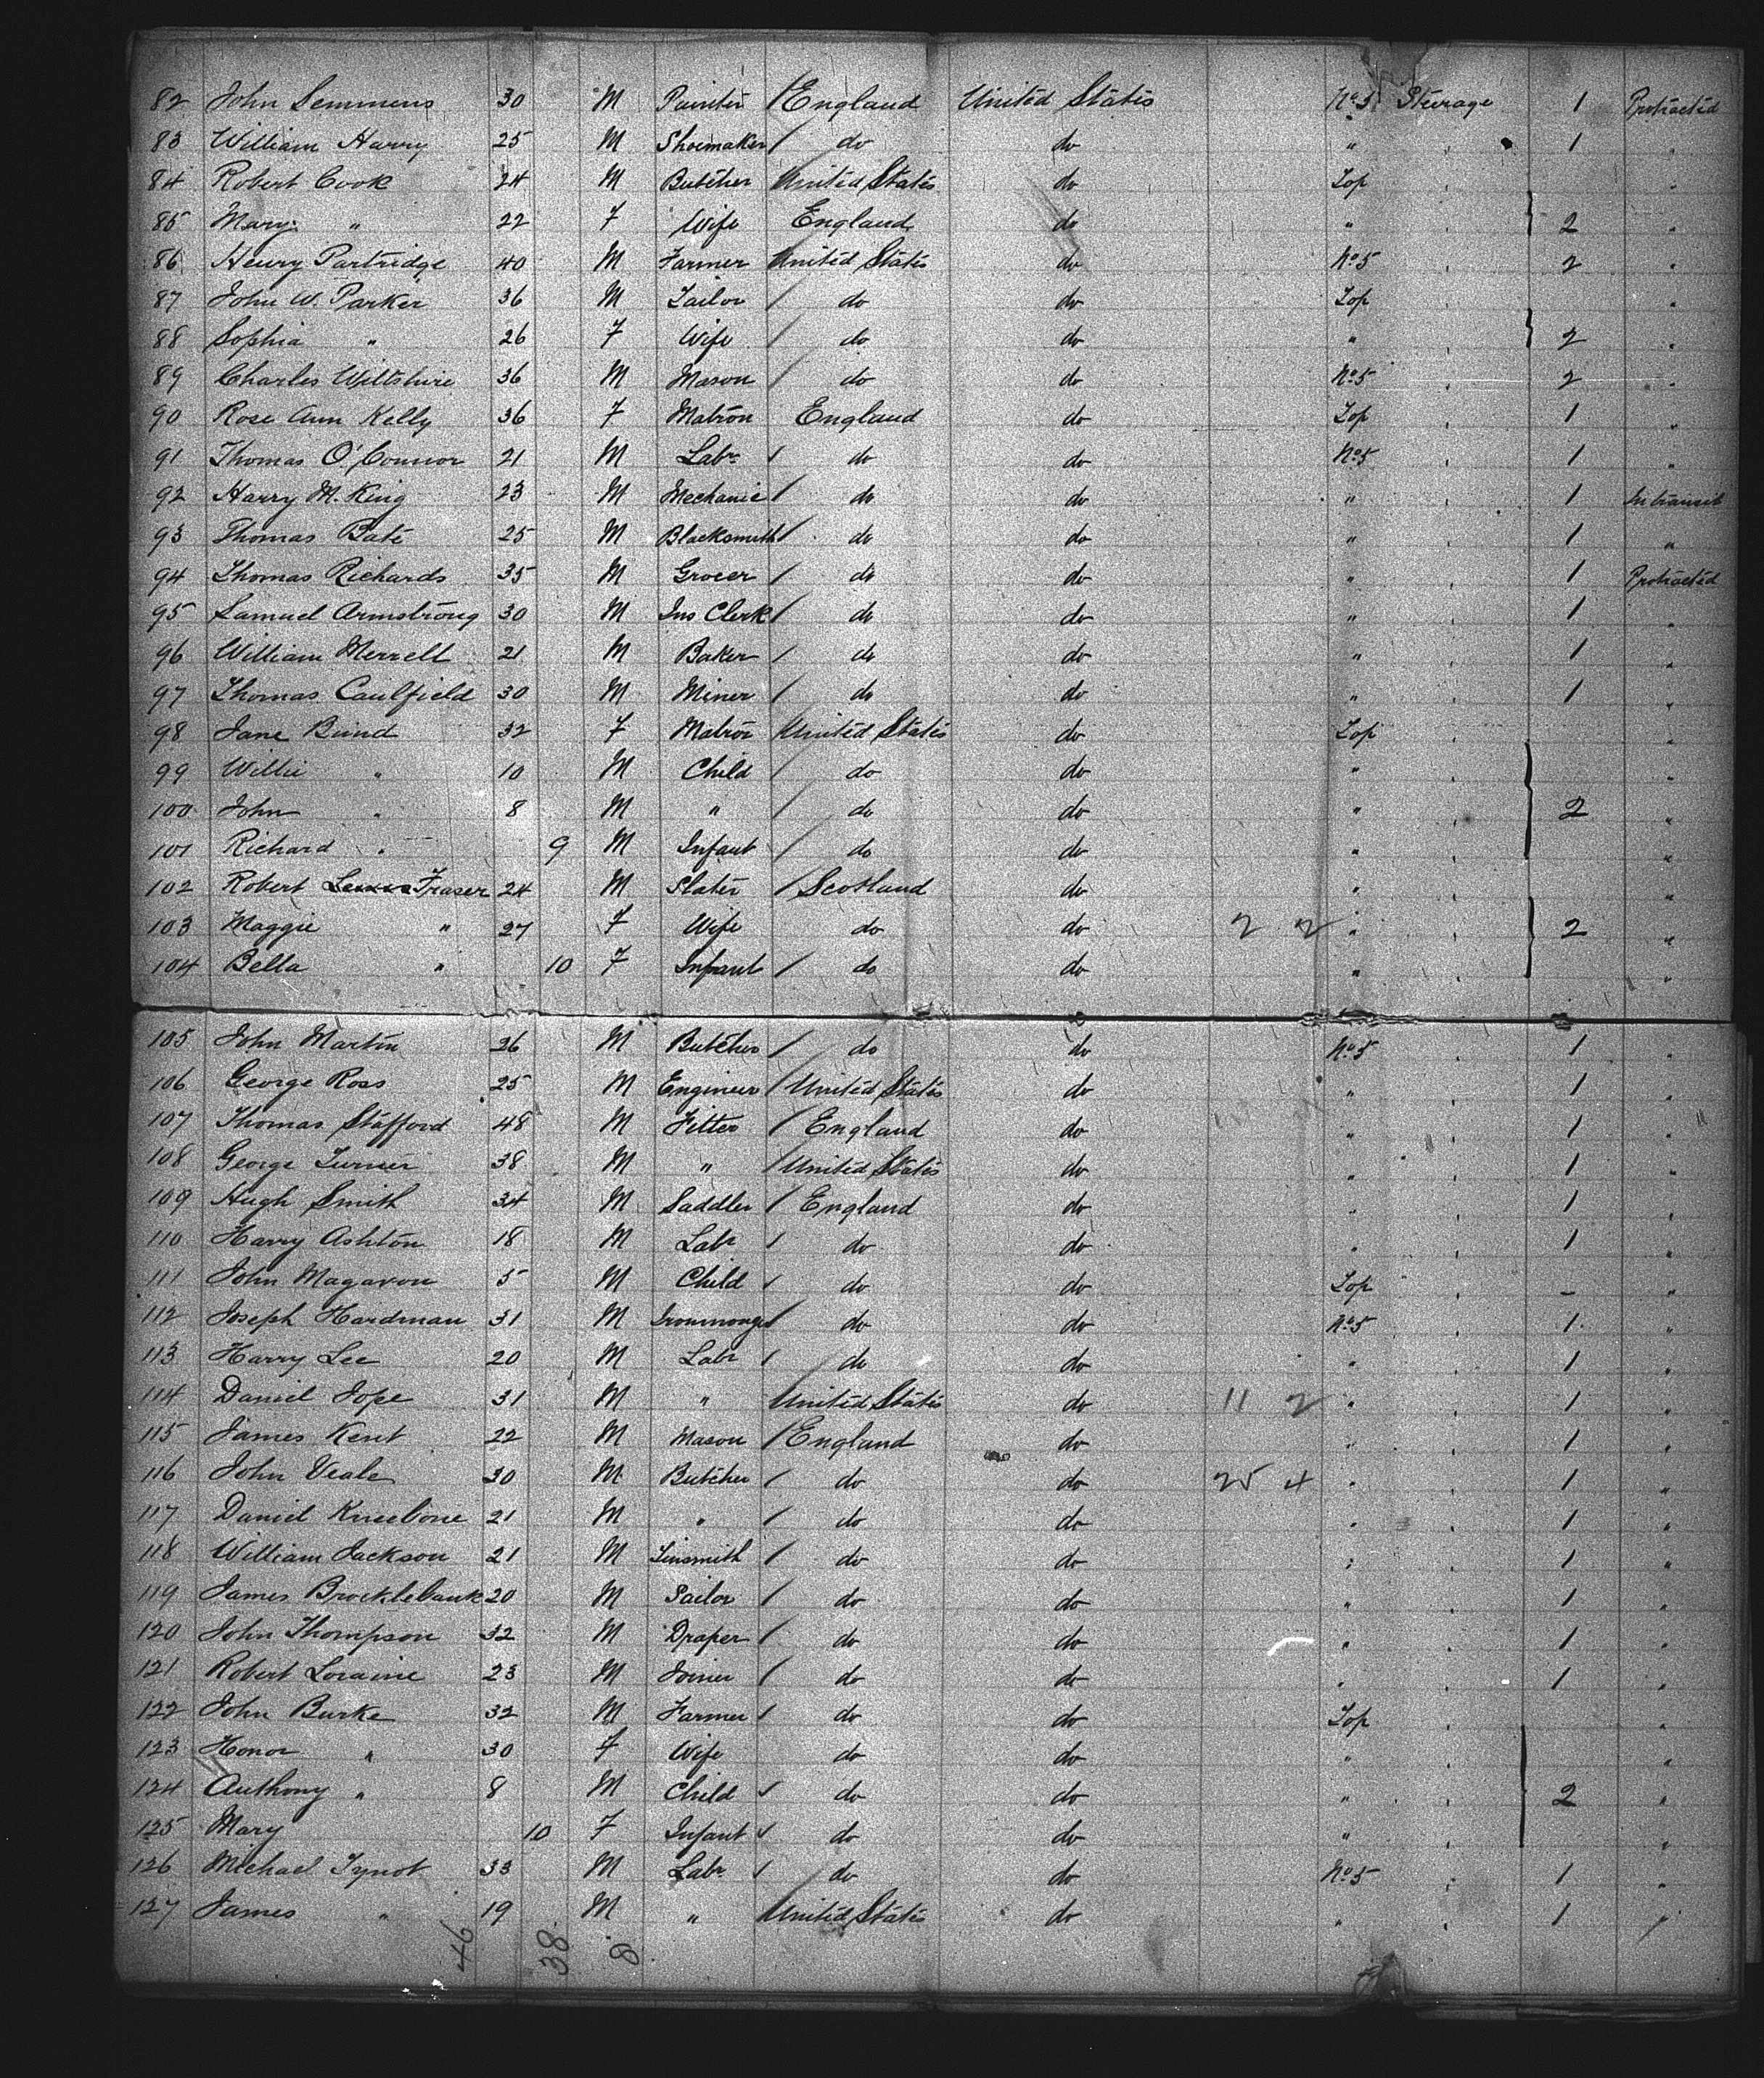 82 John Semmens 30 M Painter / England United States No 5 Steerage 1 Protracted
83 William Harry 25 M Shoemaker / do do " 1 "
84 Robert Cook 24 M Butcher United States do Top "
85 Mary " 22 F Wife England do " 2 "
86 Henry Partridge 40 M Farmer United States do No 5 2 "
87 John W. Parker 36 M Tailor / do do Top "
88 Sophia " 26 F Wife / do do " 2 "
89 Charles Wiltshire 36 M Mason / do do No 5 2 "
90 Rose Ann Kelly 36 F Matron England do Top 1 "
91 Thomas O'Connor 21 M Labr / do do No 5 1 "
92 Harry M. King 23 M Mechanic / do do " 1 In transit
93 Thomas Bate 25 M Blacksmith / do do " 1 "
94 Thomas Richards 35 M Grocer / do do " 1 Protracted
95 Samuel Armstrong 30 M Ins Clerk / do do " 1 "
96 William Merrell 21 M Baker / do do " 1 "
97 Thomas Caulfield 30 M Miner / do do " 1 "
98 Jane 32 F Matron United States do Top "
99 Willie " 10 M Child / do do " "
100 John " 8 M " / do do " 2 "
101 Richard " 9 M Infant / do do " "
102 Robert Fraser 24 M Slater / Scotland do " "
103 Maggie " 27 F Wife do do 2 2 " 2 "
104 Bella " 10 F Infant / do do " "
105 John Martin 26 M Butcher / do do No 5 1 "
106 George Ross 25 M Engineer / United States do " 1 "
107 Thomas Stafford 48 M Fitter / England do " 1 "
108 George Turner 38 M " / United States do " 1 "
109 Hugh Smith 34 M Saddler / England do " 1 "
110 Harry Ashton 18 M Labr / do do " 1 "
111 John Magavon 5 M Child / do do Top - "
112 Joseph Hardman 31 M Ironmonger / do do No 5 1 "
113 Harry Lee 20 M Labr / do do " 1 "
114 Daniel Jope 31 M " United States do 11 2 " 1 "
115 James Kent 22 M Mason / England do " 1 "
116 John Veale 30 M Butcher / do do 25 4 " 1 "
117 Daniel Kneebone 21 M " / do do " 1 "
118 William Jackson 21 M Tinsmith / do do " 1 "
119 James Brocklebank 20 M Sailor / do do " 1 "
120 John Thompson 32 M Draper / do do " 1 "
121 Robert Loraine 23 M Joiner / do do " 1 "
122 John Burke 32 M Farmer / do do Top "
123 Honor " 30 F Wife do do " "
124 Anthony " 8 M Child / do do " 2 "
125 Mary 10 F Infant / do do " "
126 Michael 33 M Labr / do do No 5 1 "
127 James " 19 M " United States do " 1 "
46 38 8